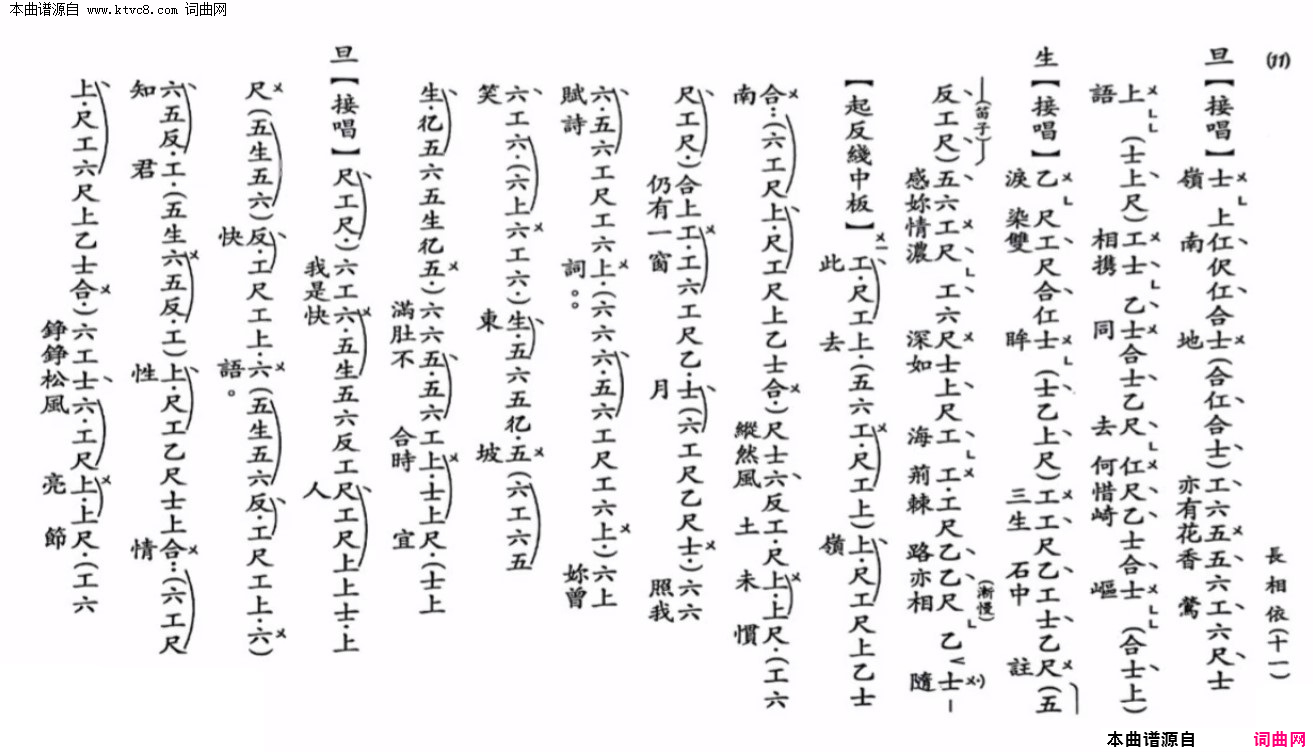 本曲谱源自 www.ktvc8.com 词曲网
(11)
長相依(十一)
旦【接唱】士上仜伬仜合士(合仜合士)工六五五六工六尺士
嶺南地 亦有花香鶯
上(士上尺)工士乙士合士乙尺仜尺乙士合士(合士上)
語 相携同去何惜崎嶇
生【接唱】乙尺工尺合仜士(士乙上尺)工工尺乙工士乙尺(五
淚染雙眸 三生石中註
(笛子)
反工尺)五六工尺工六尺士上尺工工·工尺乙乙尺乙·士-
(漸慢)
感妳情濃深如海荊棘路亦相隨
【起反綫中板】工·尺工上·(五六工·尺工上)上·尺工尺上乙士
此去嶺
合·:(六工尺上·尺工尺上乙士合·)尺士六反工·尺上·上尺·(工六
南 縱然風土未慣
尺工尺·)合上工·工六工尺乙·士(六工尺乙尺士·)六六
仍有一窗月 照我
六·五六工尺工六上·(六六六·五六工尺工六上·)六上
賦詩詞。。 妳曾
六·工六·(六上六工六·)生·五六五𠆩·五(六工六五
笑東坡
生·𠆩五六五生𠆩五·)六六五·五六工上·士上尺·(士上
滿肚不合時宜
旦【接唱】尺工尺·)六工六·五生五六反工尺工尺上上士·上
我是快人
尺(五生五六)反·工尺工上·六(五生五六反·工尺工上·六)
快語。
六五反·工·(五生六五反·工)上·尺工乙尺士上合·:(六工尺
知君性情
上·尺工六尺上乙士合·)六工士六·工尺上·上尺·(工六
錚錚松風亮節
本曲谱源自 词曲网